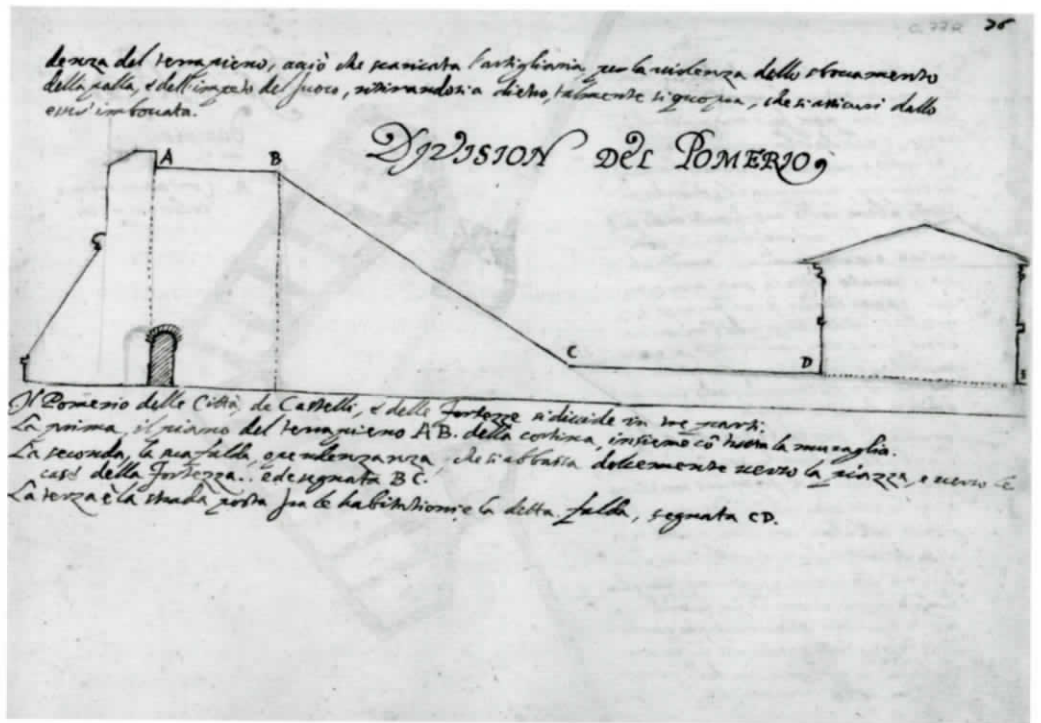 c. 77 R 36
denza del terrapieno, acciò che scaricata l'artigliaria per la violenza dello sboccamento
della palla, e dell'impeto del fuoco, ritirandosi a dietro, talmente si che si assicuri dallo
esser imboccata.
DIVISION DEL POMERIO
A B
C
D
Il Pomerio delle Città, de Castelli, e delle Fortezze si divide in tre parti.
La prima, il piano del terrapieno AB. della cortina, insieme cõ tutta la muraglia.
La seconda, la sua falda, che si abbassa dolcemente verso la piazza, e verso le
case della Fortezza.. ed è segnata BC.
La terza è la strada posta fra le habitationi, e la detta falda, segnata CD.